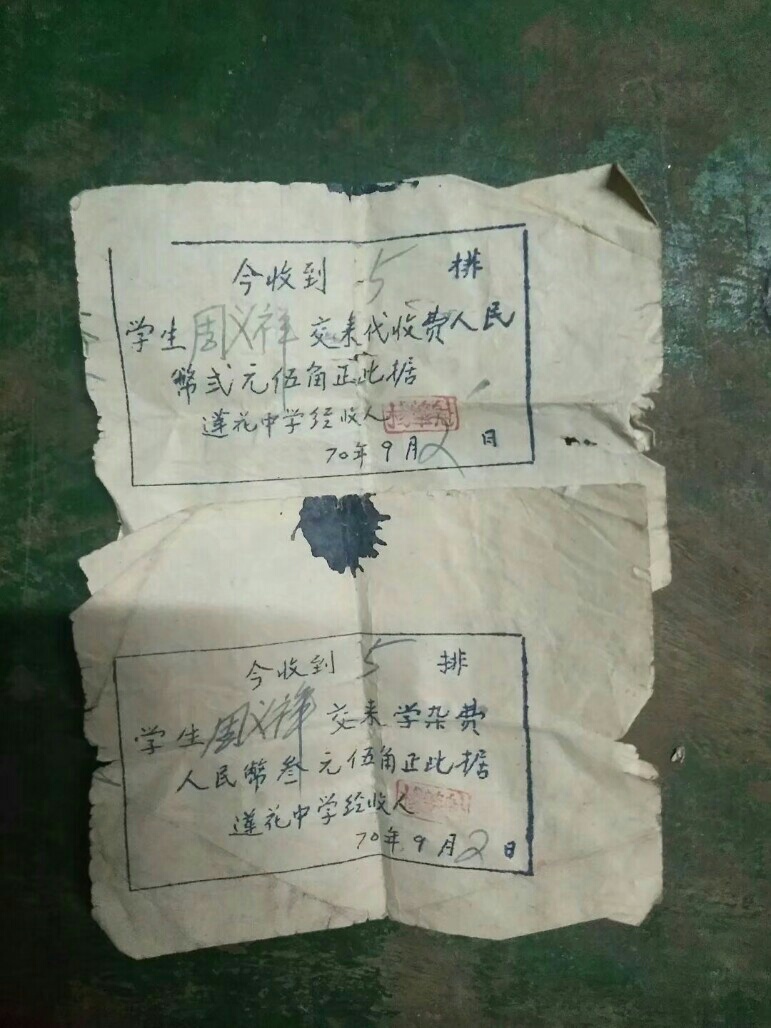 今收到 5 排
学生周义祥交来代收费人民
幣弍元伍角正此据
莲花中学经收人
70年9月2日
今收到 5 排
学生周义祥交来学杂费
人民幣叁元伍角正此据
莲花中学经收人
70年9月2日